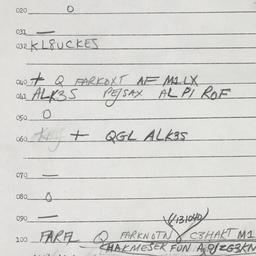 020 O
031 —
032 KL8UCKES
040 + Q FARKOXT AF M1LX
041 ALK3S PE/SAX ALP1 ROF
050 O
060 + QGL ALK3S
070 —
080 O
090 —
100 FARFL Q FARKNOTN C3HAKT M1
CHAKMESER FUN